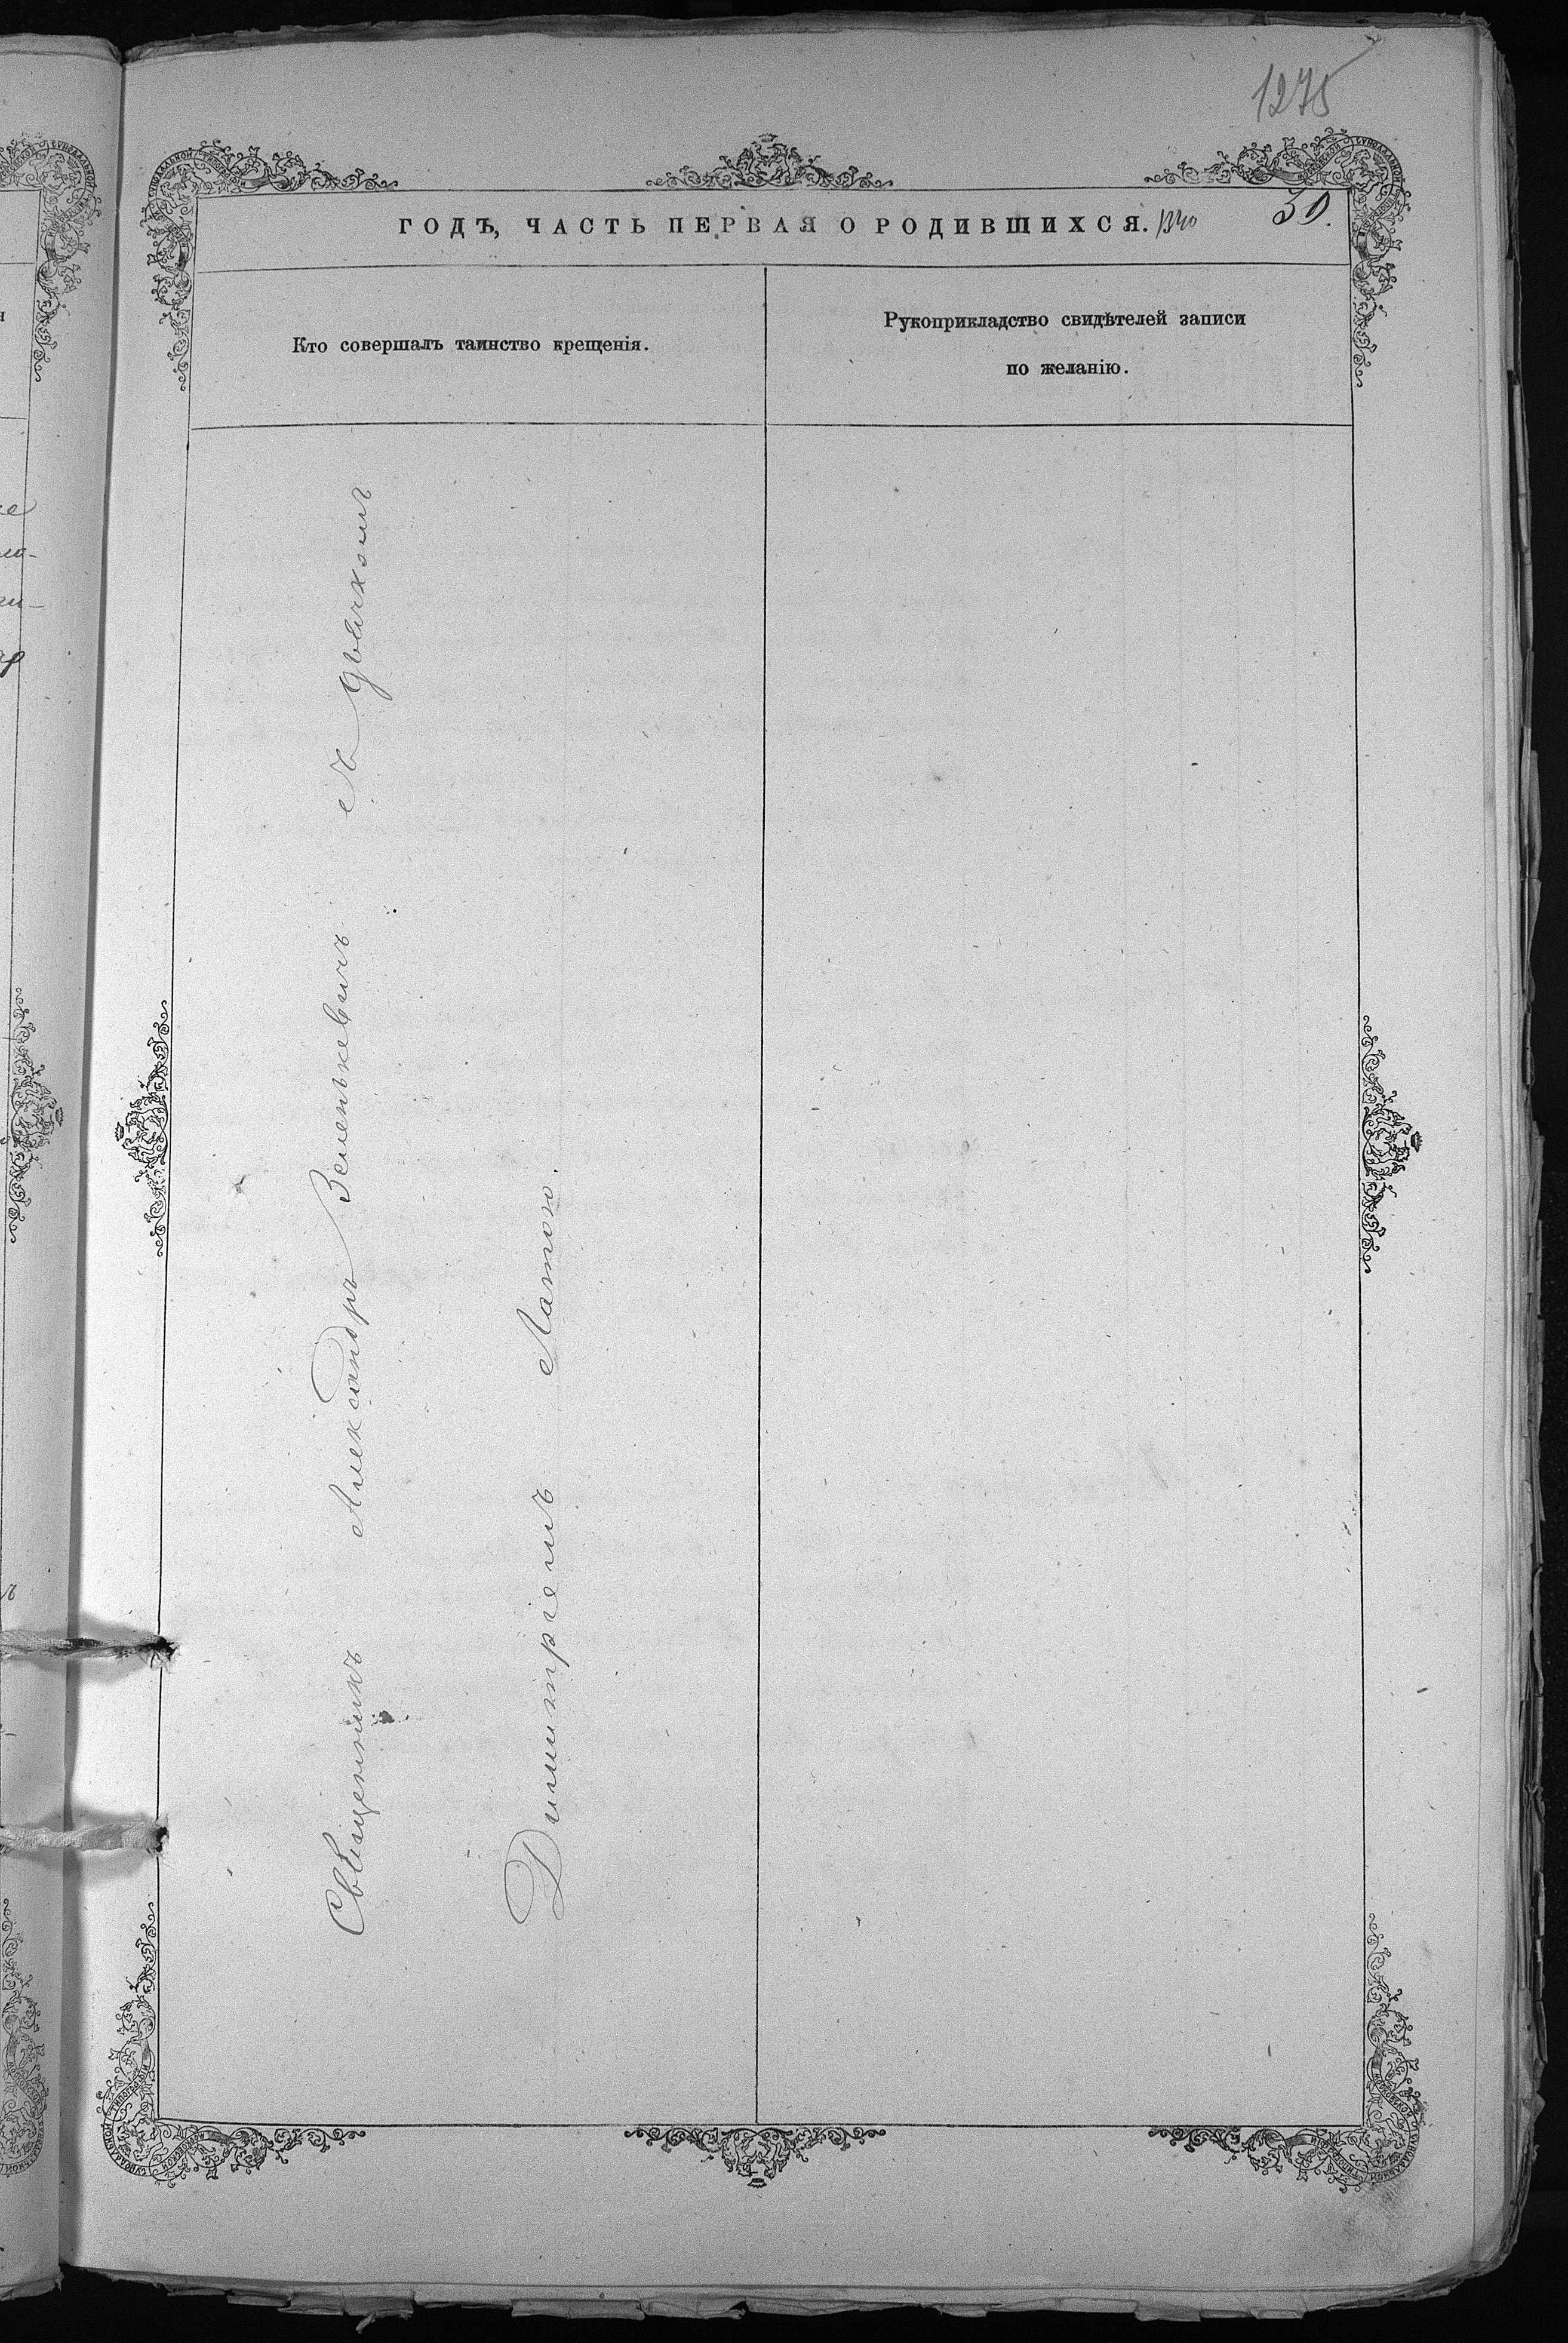 1275
ГОДЪ, ЧАСТЬ ПЕРВАЯ О РОДИВШИХСЯ.
30.
Кто совершалъ таинство крещенія.
Рукоприкладство свидѣтелей записи
по желанію.
Священникъ Александръ Зенькевичъ съ дьячкомъ
Димитріемъ Лапою.